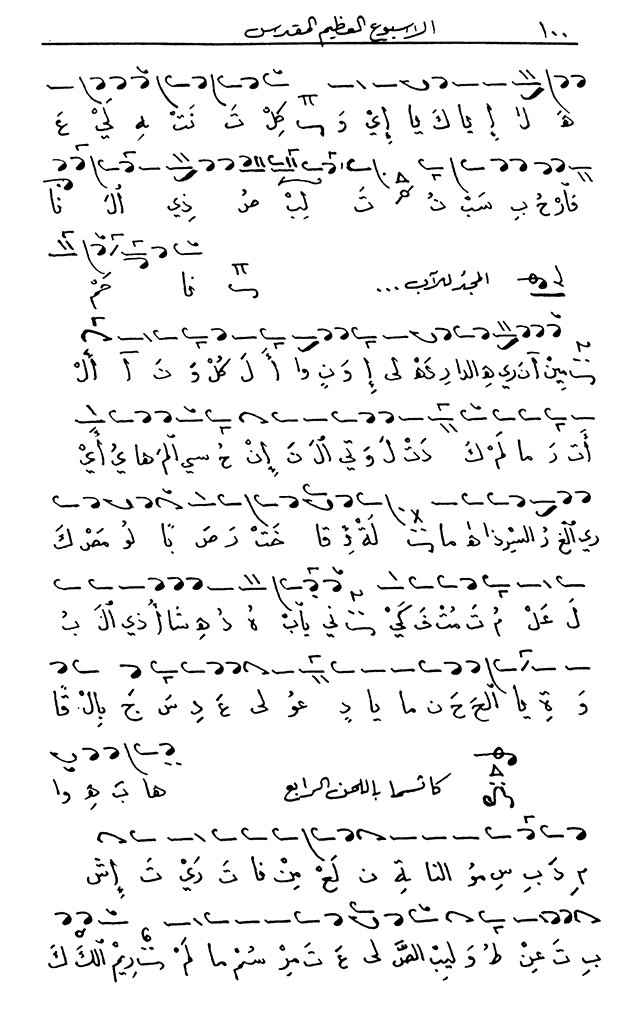 ١٠٠ الاسبوع العظيم المقدس
هَ لا إِ يا كَ يا إِيْ وَ كِلْ تَ نَتْ هِ لَيْ عَ
فَأَرْحُ بِ سَبْ تُ تَ لِبْ صُ ذِي أَلَ نا
المجد للآب ... نا حَمْ
مِينْ آنَ رِي هِ الدا رِ كَهْ لى إِ وَ نِ وا أَ لَ كُلْ وَ تَ آ أَلْ
أَتْ رَ ما لَمْ كَ دَتْ لَ وَ تِي أَلَ تَ إِنْ حُ سي أَلْمَ ها يُ أَيْ
ري الغ رُ السِرْ ذا هَ ما لَةْ ذَ قا خَتْ رَ صَ بًا لُو مَصْ كَ
لَ عَلْ مُ تَ مُتْ فَ كَيْ ني يأبْ هُ دُ هِ شا أُ ذي أَلَ بُ
وَ ةِ يا أَلْحَ حَ نَ ما يا دِ عو لى عَ دِ سَ جَ بِالْ قا
كاتسما باللحن الرابع ها بَ هِ وا
مِ دَ بِ سِ مو النا ةِ نَ لَعْ مِنْ فا تَ رَيْ تَ إِشْ
بِ تَ عِنْ طُ وَ لِيبْ الصَّ لى عَ تَ مِرْ سُمْ ما لَمْ رِيمْ الكَ كَ